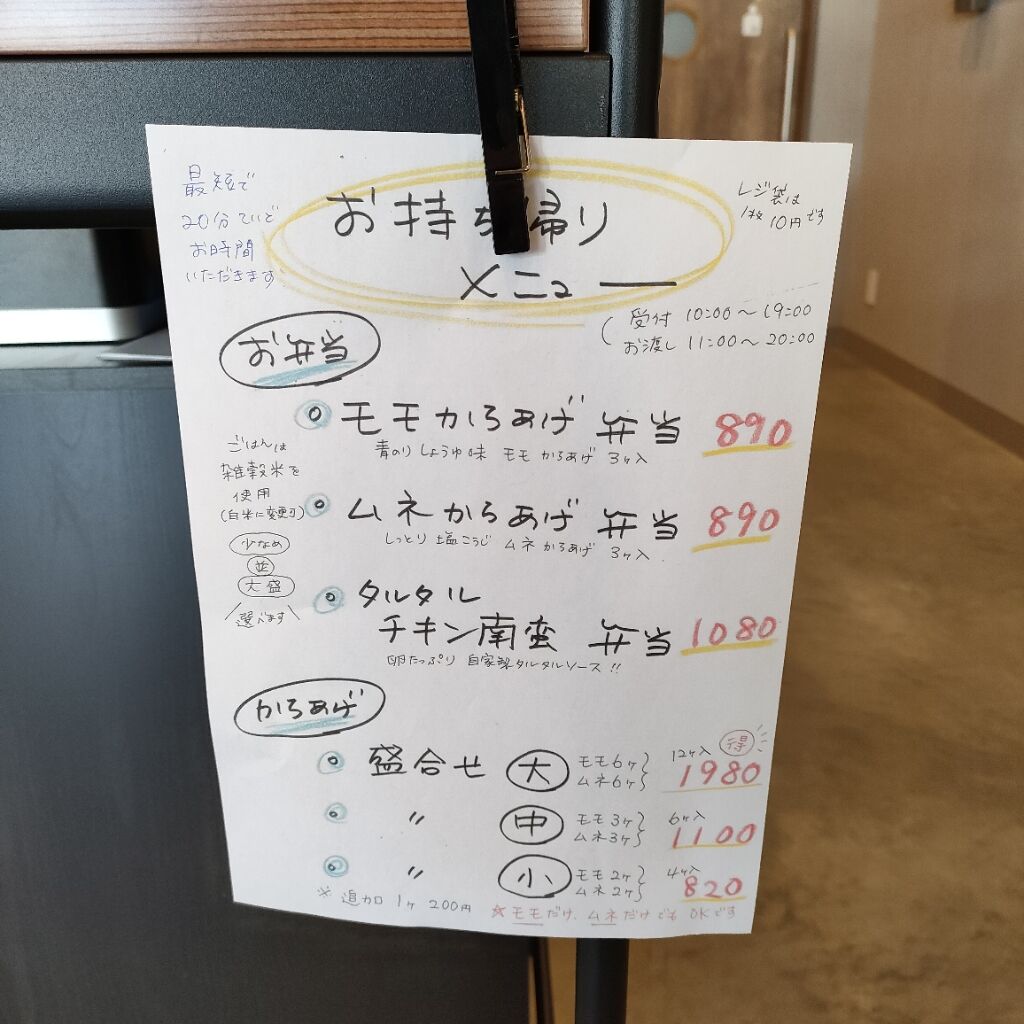 お持ち帰り
メニュー
最短で
20分ていど
お時間
いただきます
レジ袋は
1枚10円です
受付 10:00〜19:00
お渡し 11:00〜20:00
お弁当
モモからあげ弁当 890
青のりしょうゆ味 モモからあげ 3ヶ入
ムネからあげ弁当 890
しっとり塩こうじ ムネからあげ 3ヶ入
タルタル
チキン南蛮 弁当 1080
卵たっぷり 自家製タルタルソース!!
ごはんは
雑穀米を
使用
(白米に変更可)
少なめ
並
大盛
選べます
からあげ
盛合せ 大 モモ6ヶ ムネ6ヶ 12ヶ入 得 1980
〃 中 モモ3ヶ ムネ3ヶ 6ヶ入 1100
〃 小 モモ2ヶ ムネ2ヶ 4ヶ入 820
※追加 1ヶ 200円 ☆モモだけ、ムネだけでもOKです